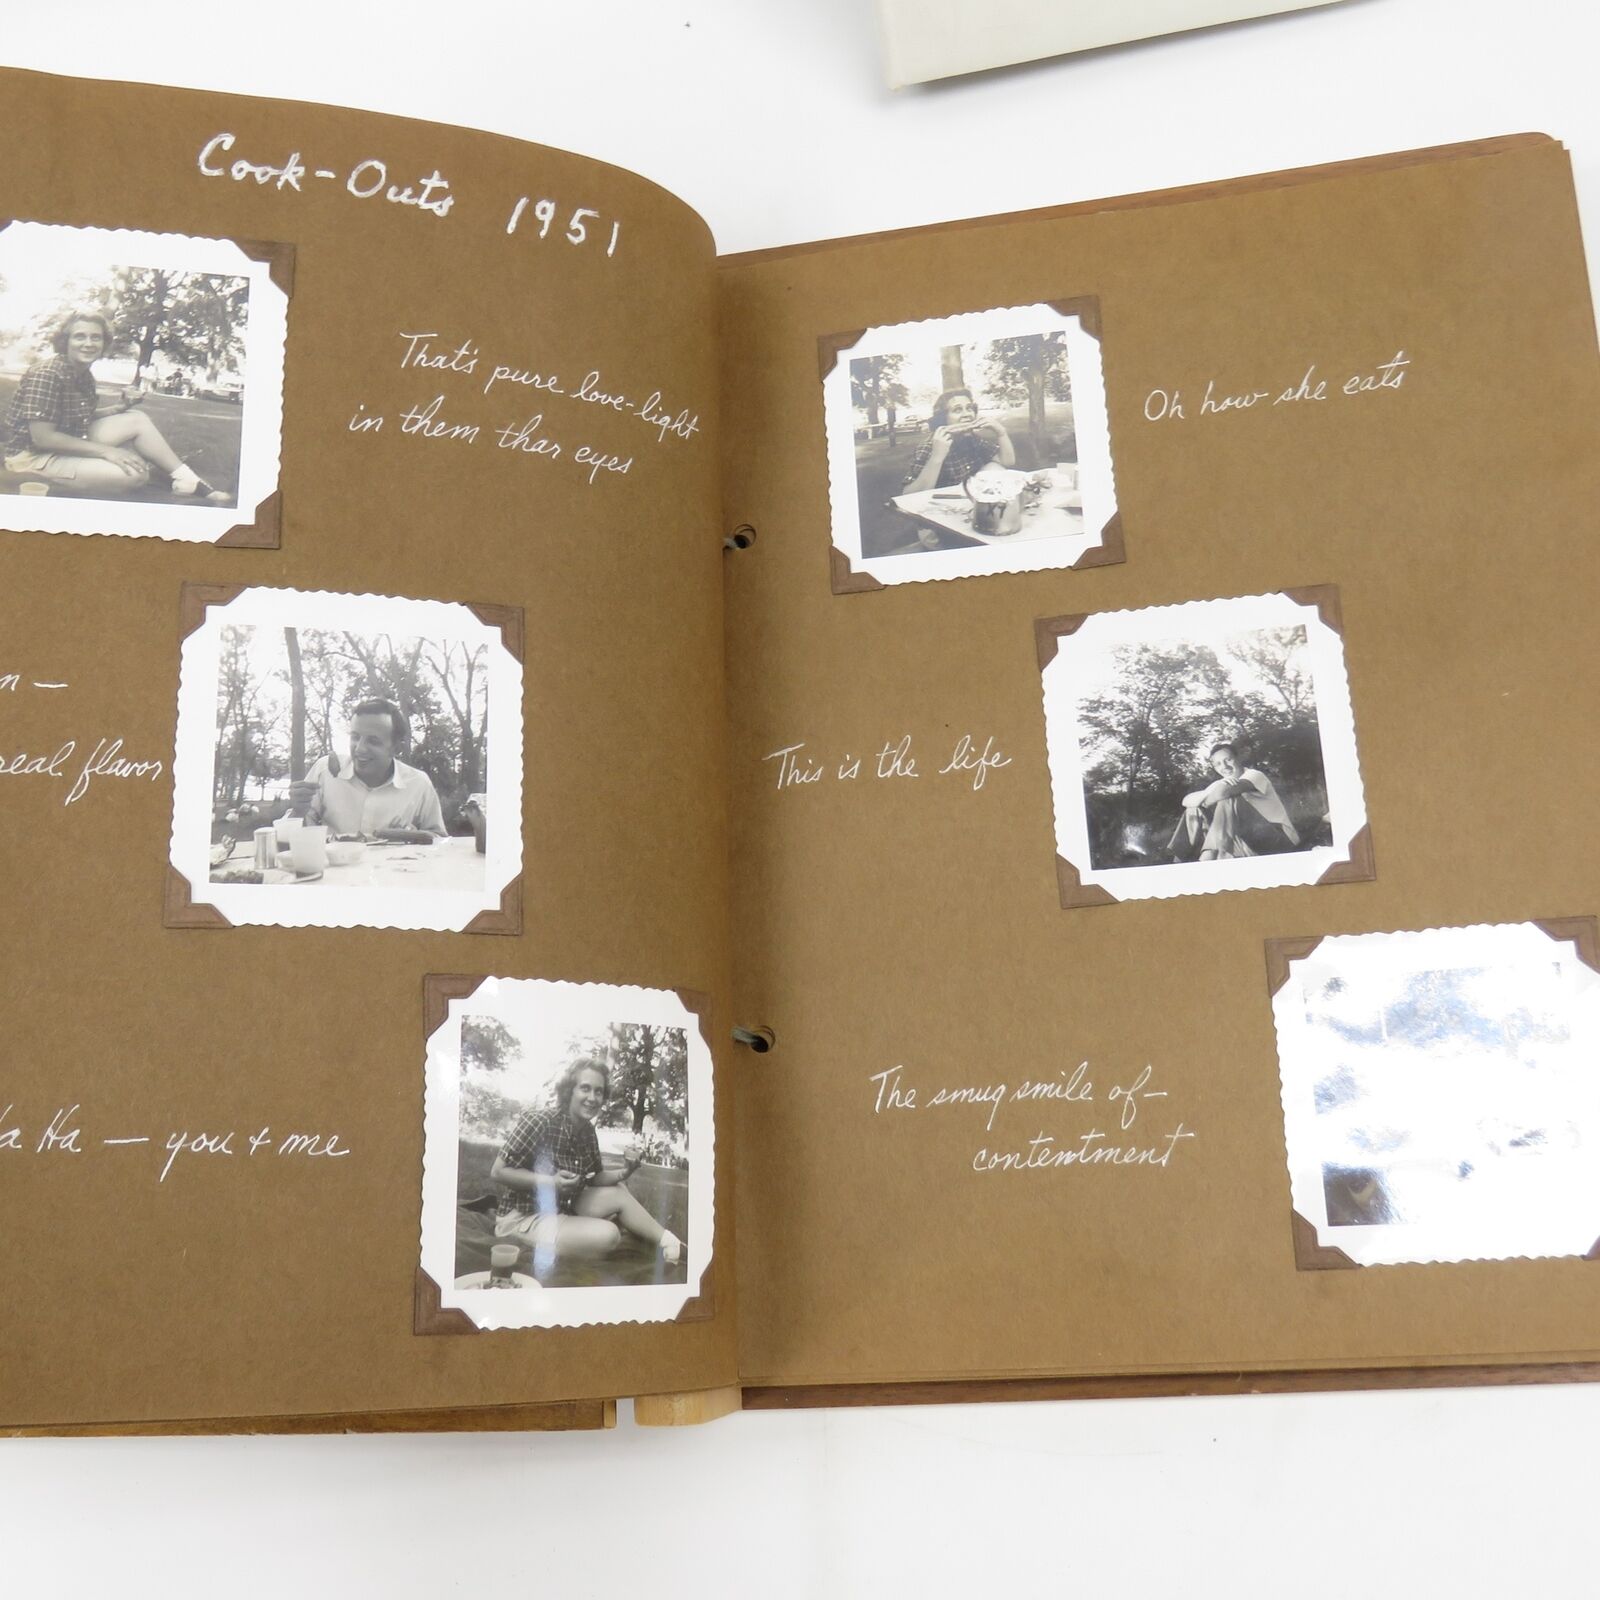 Cook-Outs 1951
That's pure love-light
in them thar eyes
real flavor
Ha — you & me
Oh how she eats
This is the life
The smug smile of—
contentment